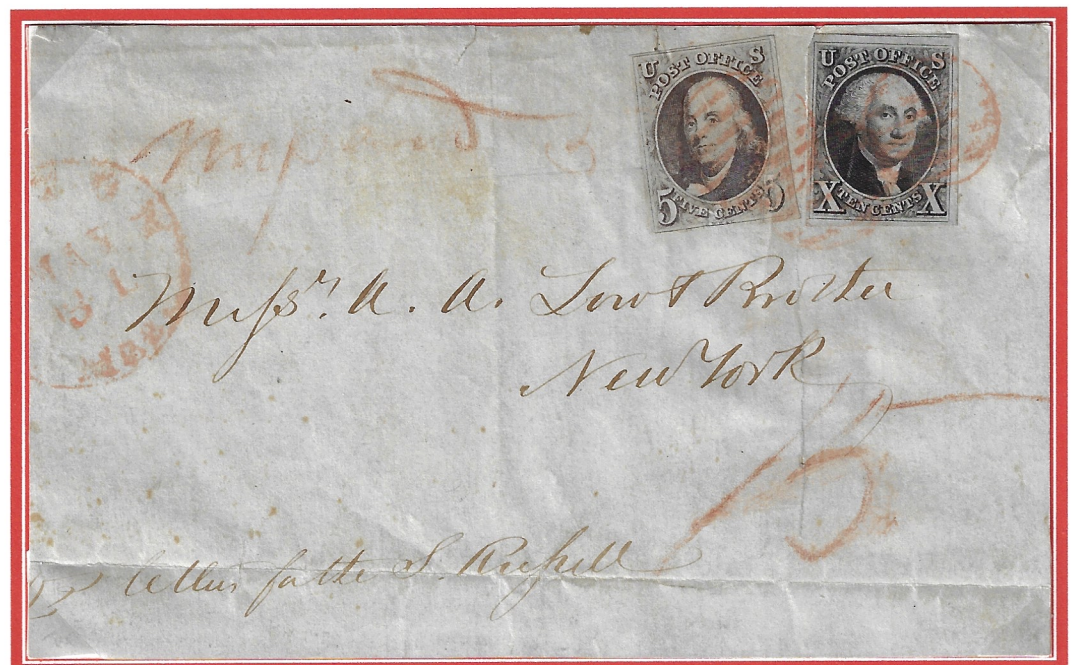 U S
POST OFFICE
5 FIVE CENTS 5
U S
POST OFFICE
X TEN CENTS X
31
Messrs. A. A. Low & Brother
New York
letters for the S. Russell